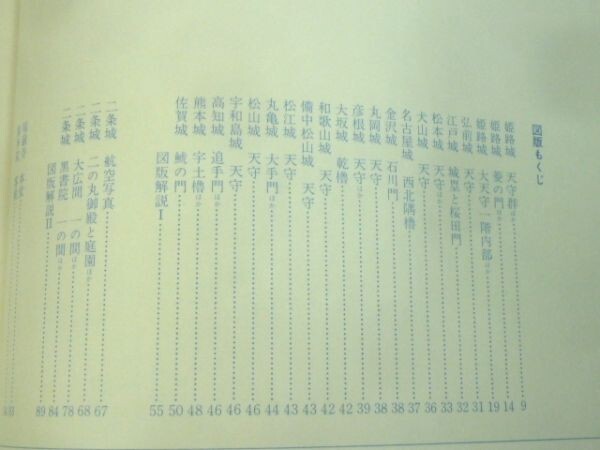 図版もくじ
姫路城 天守群ほか 9
姫路城 菱の門ほか 14
姫路城 大天守一階内部ほか 19
弘前城 天守 31
江戸城 城塁と桜田門 32
松本城 天守ほか 33
犬山城 天守 36
名古屋城 西北隅櫓 37
金沢城 石川門 38
丸岡城 天守 38
彦根城 天守ほか 39
大坂城 乾櫓 42
和歌山城 天守 42
備中松山城 天守 43
松江城 天守 43
丸亀城 大手門ほか 44
松山城 天守 46
宇和島城 天守 46
高知城 追手門ほか 46
熊本城 宇土櫓ほか 48
佐賀城 鯱の門 50
図版解説Ⅰ 55
二条城 航空写真 67
二条城 二の丸御殿と庭園ほか 68
二条城 大広間 一の間ほか 78
二条城 黒書院 一の間ほか 84
図版解説Ⅱ 89